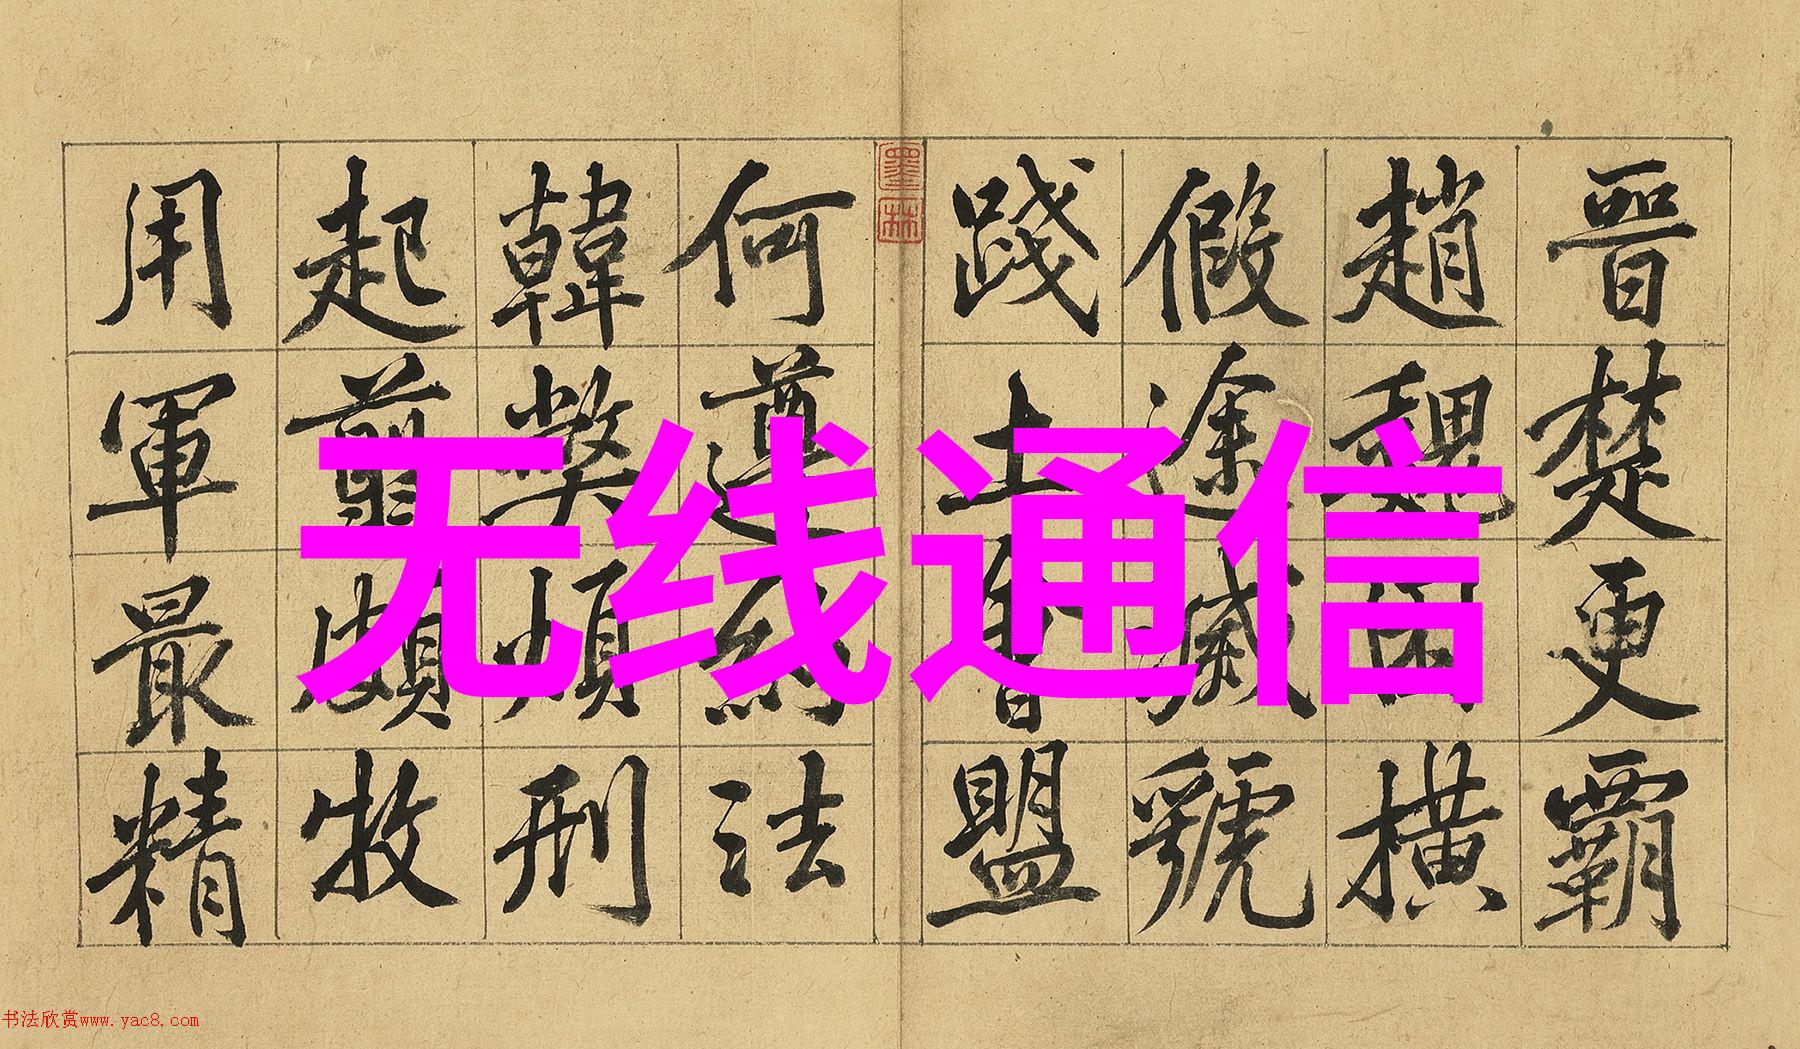 晉楚更霸
趙魏困橫
假途滅虢
踐土會盟
墨林
何遵約法
韓弊煩刑
起翦頗牧
用軍最精
无线通信
书法欣赏www.yac8.com